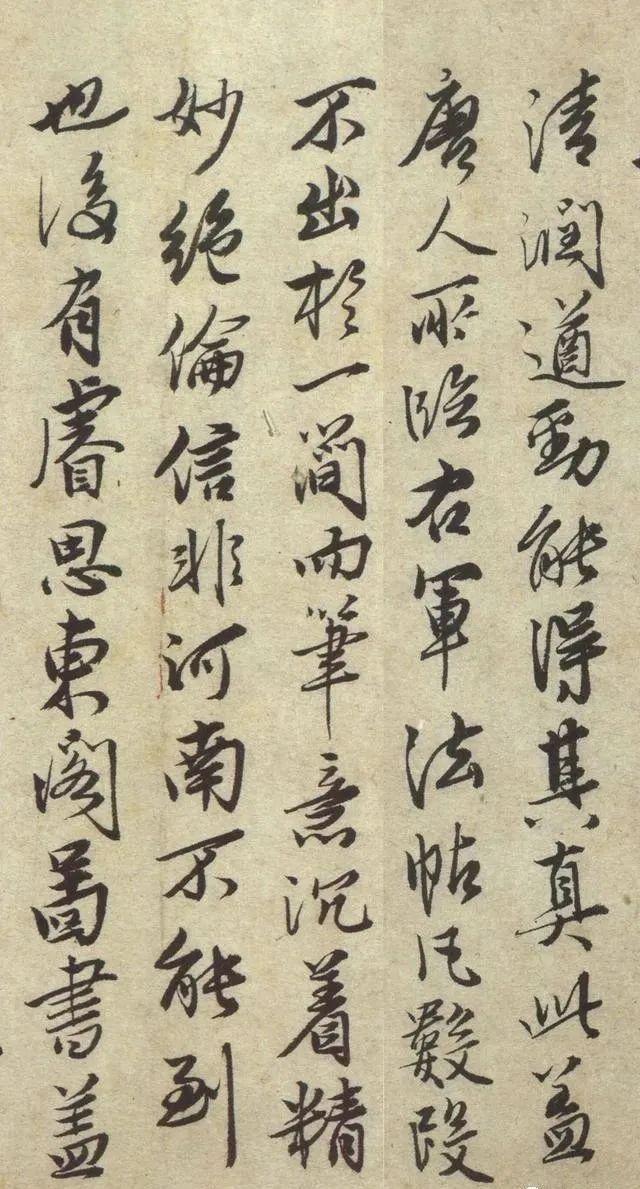 清潤遒勁能得其真此蓋
唐人所臨右軍法帖凡數段
不出於一簡而筆意沉着精
妙絶倫信非河南不能到
也後有睿思東閣圖書蓋